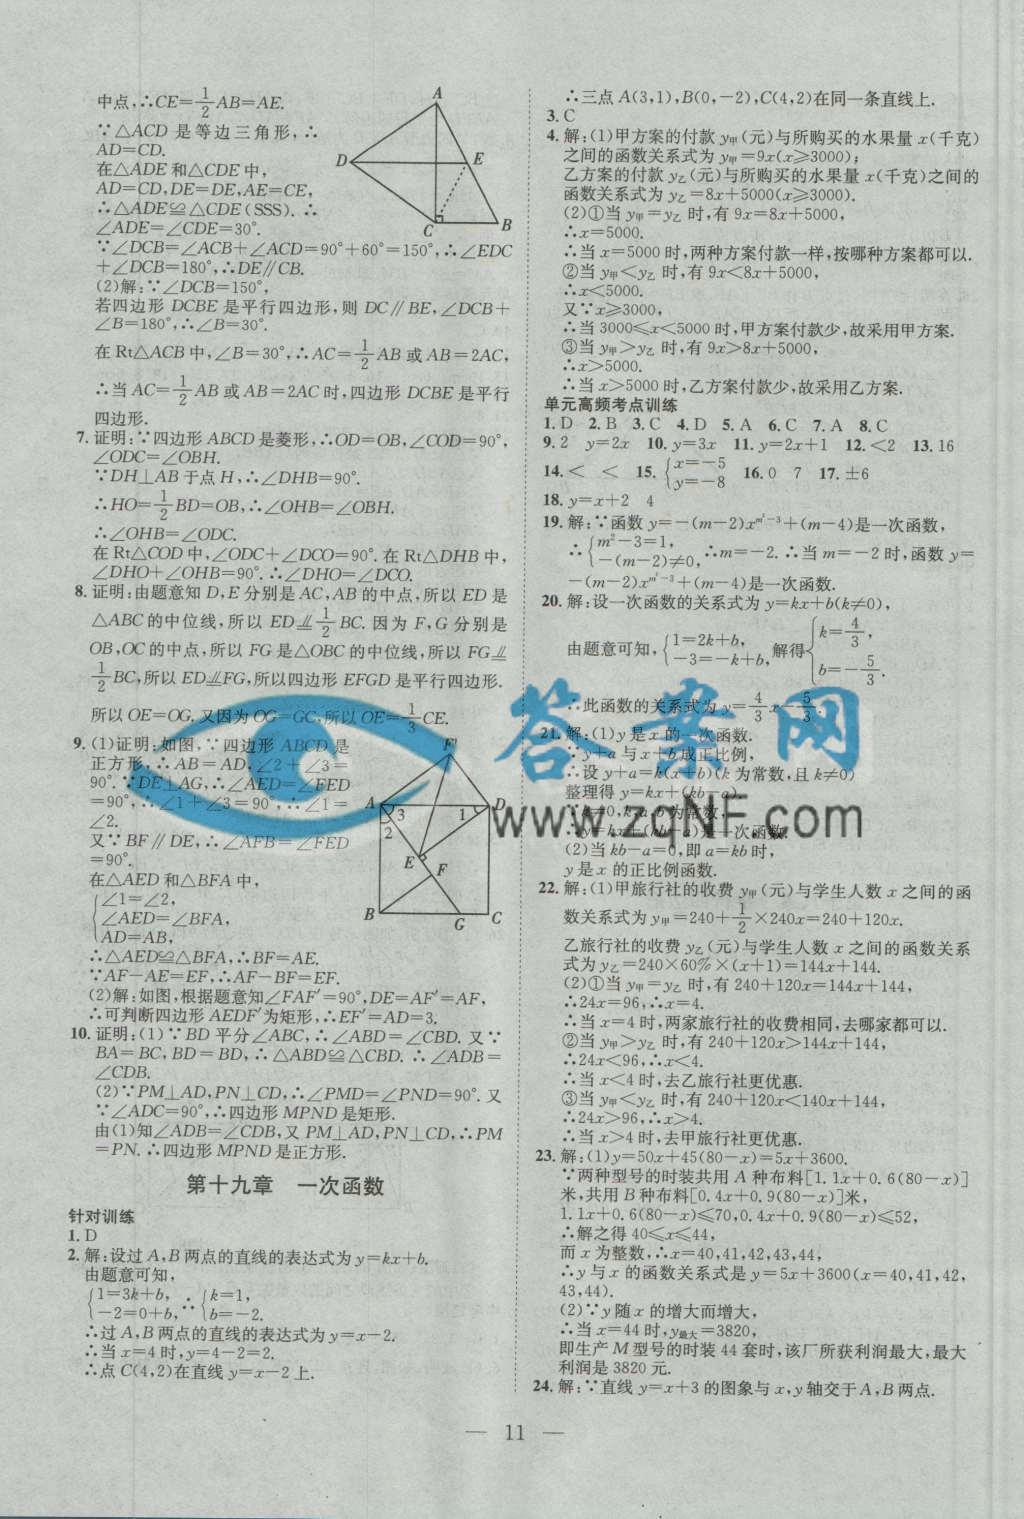 中点,∴CE=1/2AB=AE.
∵△ACD 是等边三角形,∴
AD=CD.
在△ADE 和△CDE 中,
AD=CD,DE=DE,AE=CE,
∴△ADE≌△CDE(SSS).∴
∠ADE=∠CDE=30°.
∵∠DCB=∠ACB+∠ACD=90°+60°=150°,∴∠EDC
+∠DCB=180°,∴DE∥CB.
(2)解:∵∠DCB=150°,
若四边形 DCBE 是平行四边形,则 DC∥BE,∠DCB+
∠B=180°,∴∠B=30°.
在 Rt△ACB 中,∠B=30°,∴AC=1/2AB 或 AB=2AC,
∴当 AC=1/2AB 或 AB=2AC 时,四边形 DCBE 是平行
四边形.
A
D
E
C
B
7. 证明:∵四边形 ABCD 是菱形,∴OD=OB,∠COD=90°,
∠ODC=∠OBH.
∵DH⊥AB 于点 H,∴∠DHB=90°.
∴HO=1/2BD=OB,∴∠OHB=∠OBH.
∴∠OHB=∠ODC.
在 Rt△COD 中,∠ODC+∠DCO=90°.在 Rt△DHB 中,
∠DHO+∠OHB=90°.∴∠DHO=∠DCO.
8. 证明:由题意知 D,E 分别是 AC,AB 的中点,所以 ED 是
△ABC 的中位线,所以 ED∥=1/2BC. 因为 F,G 分别是
OB,OC 的中点,所以 FG 是△OBC 的中位线,所以 FG∥=
1/2BC,所以 ED∥=FG,所以四边形 EFGD 是平行四边形.
所以 OE=OG. 又因为 OG=GC,所以 OE=1/3CE.
9. (1)证明:如图,∵四边形 ABCD 是
正方形,∴AB=AD,∠2+∠3=
90°.∵DE⊥AG,∴∠AED=∠FED
=90°,∴∠1+∠3=90°,∴∠1=
∠2.
又∵BF∥DE,∴∠AFB=∠FED
=90°.
在△AED 和△BFA 中,
{∠1=∠2,
∠AED=∠BFA,
AD=AB,
∴△AED≌△BFA,∴BF=AE.
∵AF−AE=EF,∴AF−BF=EF.
(2)解:如图,根据题意知∠FAF′=90°,DE=AF′=AF,
∴可判断四边形 AEDF′为矩形,∴EF′=AD=3.
F′
A
3
2
1
D
E
F
B
G
C
10. 证明:(1)∵BD 平分∠ABC,∴∠ABD=∠CBD. 又∵
BA=BC,BD=BD,∴△ABD≌△CBD.∴∠ADB=
∠CDB.
(2)∵PM⊥AD,PN⊥CD,∴∠PMD=∠PND=90°.又
∵∠ADC=90°,∴四边形 MPND 是矩形.
由(1)知∠ADB=∠CDB,又 PM⊥AD,PN⊥CD,∴PM
=PN.∴四边形 MPND 是正方形.
第十九章 一次函数
针对训练
1. D
2. 解:设过 A,B 两点的直线的表达式为 y=kx+b.
由题意可知,
{1=3k+b, −2=0+b, ∴{k=1, b=−2.
∴过 A,B 两点的直线的表达式为 y=x−2.
∴当 x=4 时,y=4−2=2.
∴点 C(4,2)在直线 y=x−2 上.
∴三点 A(3,1),B(0,−2),C(4,2)在同一条直线上.
3. C
4. 解:(1)甲方案的付款 y甲(元)与所购买的水果量 x(千克)
之间的函数关系式为 y甲=9x(x≥3000);
乙方案的付款 y乙(元)与所购买的水果量 x(千克)之间的
函数关系式为 y乙=8x+5000(x≥3000).
(2)①当 y甲=y乙 时,有 9x=8x+5000,
∴x=5000.
∴当 x=5000 时,两种方案付款一样,按哪种方案都可以.
②当 y甲<y乙 时,有 9x<8x+5000,
∴x<5000.
又∵x≥3000,
∴当 3000≤x<5000 时,甲方案付款少,故采用甲方案.
③当 y甲>y乙 时,有 9x>8x+5000,
∴x>5000.
∴当 x>5000 时,乙方案付款少,故采用乙方案.
单元高频考点训练
1. D 2. B 3. C 4. D 5. A 6. C 7. A 8. C
9. 2 y=2x 10. y=3x 11. y=2x+1 12. <2 13. 16
14. < < 15. {x=−5 y=−8 16. 0 7 17. ±6
18. y=x+2 4
19. 解:∵函数 y=−(m−2)x^{m²−3}+(m−4)是一次函数,
∴{m²−3=1, −(m−2)≠0, ∴m=−2.∴当 m=−2 时,函数 y=
−(m−2)x^{m²−3}+(m−4)是一次函数.
20. 解:设一次函数的关系式为 y=kx+b(k≠0),
由题意可知,{1=2k+b, −3=−k+b, 解得{k=4/3, b=−5/3.
∴此函数的关系式为 y=4/3x−5/3.
21. 解:(1)y 是 x 的一次函数.
∵y+a 与 x+b 成正比例,
∴设 y+a=k(x+b)(k 为常数,且 k≠0)
整理得 y=kx+(kb−a).
∵k≠0,k,a,b 为常数,
∴y=kx+(kb−a)是一次函数.
(2)当 kb−a=0,即 a=kb 时,
y 是 x 的正比例函数.
22. 解:(1)甲旅行社的收费 y甲(元)与学生人数 x 之间的函
数关系式为 y甲=240+1/2×240x=240+120x.
乙旅行社的收费 y乙(元)与学生人数 x 之间的函数关系
式为 y乙=240×60%×(x+1)=144x+144.
(2)①当 y甲=y乙 时,有 240+120x=144x+144,
∴24x=96,∴x=4.
∴当 x=4 时,两家旅行社的收费相同,去哪家都可以.
②当 y甲>y乙 时,有 240+120x>144x+144,
∴24x<96,∴x<4.
∴当 x<4 时,去乙旅行社更优惠.
③当 y甲<y乙 时,有 240+120x<140x+144,
∴24x>96,∴x>4.
∴当 x>4 时,去甲旅行社更优惠.
23. 解:(1)y=50x+45(80−x)=5x+3600.
∵两种型号的时装共用 A 种布料[1.1x+0.6(80−x)]
米,共用 B 种布料[0.4x+0.9(80−x)]米,
1.1x+0.6(80−x)≤70,0.4x+0.9(80−x)≤52,
∴解之得 40≤x≤44,
而 x 为整数,∴x=40,41,42,43,44,
∴y 与 x 的函数关系式是 y=5x+3600(x=40,41,42,
43,44).
(2)∵y 随 x 的增大而增大,
∴当 x=44 时,y最大=3820,
即生产 M 型号的时装 44 套时,该厂所获利润最大,最大
利润是 3820 元.
24. 解:∵直线 y=x+3 的图象与 x,y 轴交于 A,B 两点.
答案网
www.zqNF.com
— 11 —